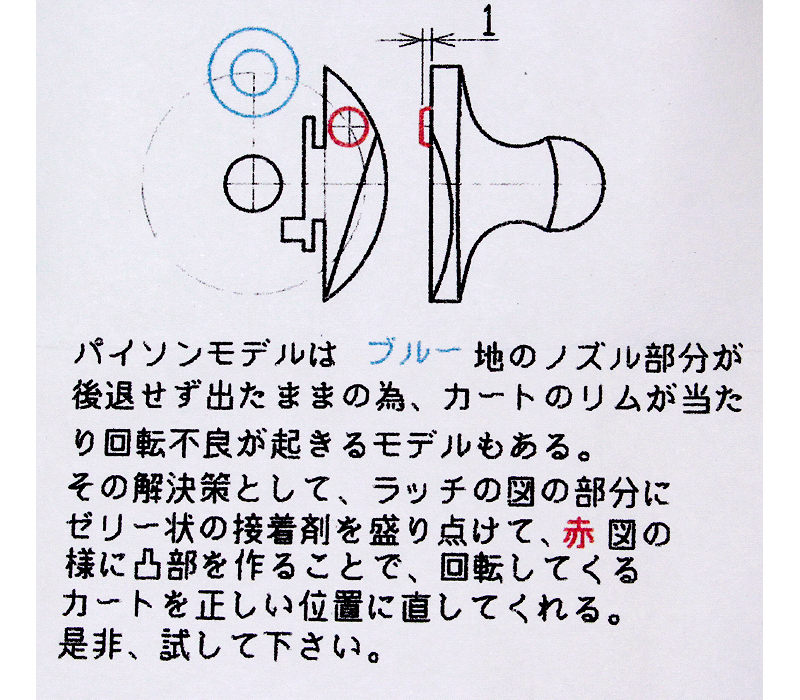 1
パイソンモデルは ブルー 地のノズル部分が
後退せず出たままの為、カートのリムが当た
り回転不良が起きるモデルもある。
その解決策として、ラッチの図の部分に
ゼリー状の接着剤を盛り点けて、赤 図の
様に凸部を作ることで、回転してくる
カートを正しい位置に直してくれる。
是非、試して下さい。